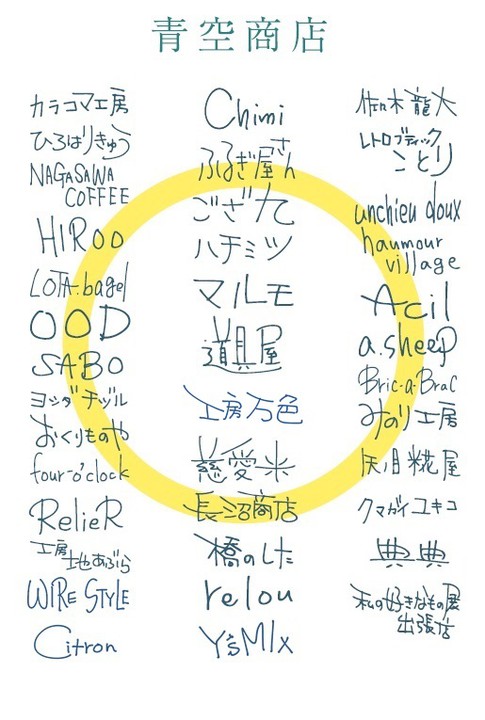 青空商店
カラコマ工房
ひろはりきゅう
NAGASAWA
COFFEE
HIROO
LOTA-bagel
OOD
SABO
ヨシダチヅル
おくりものや
four-o'clock
RelieR
工房
地あぶら
WIRE STYLE
Citron
Chimi
ふるぎ屋さん
ござ九
ハチミツ
マルモ
道具屋
工房万色
慈愛米
長沼商店
橋のした
relou
Y'sMIx
佐々木龍大
レトロブティック
ことり
unchieu doux
haumour
village
Acil
a.sheep
Bric-a-Brac
みのり工房
糀屋
クマガイユキコ
典典
私の好きなもの展
出張店